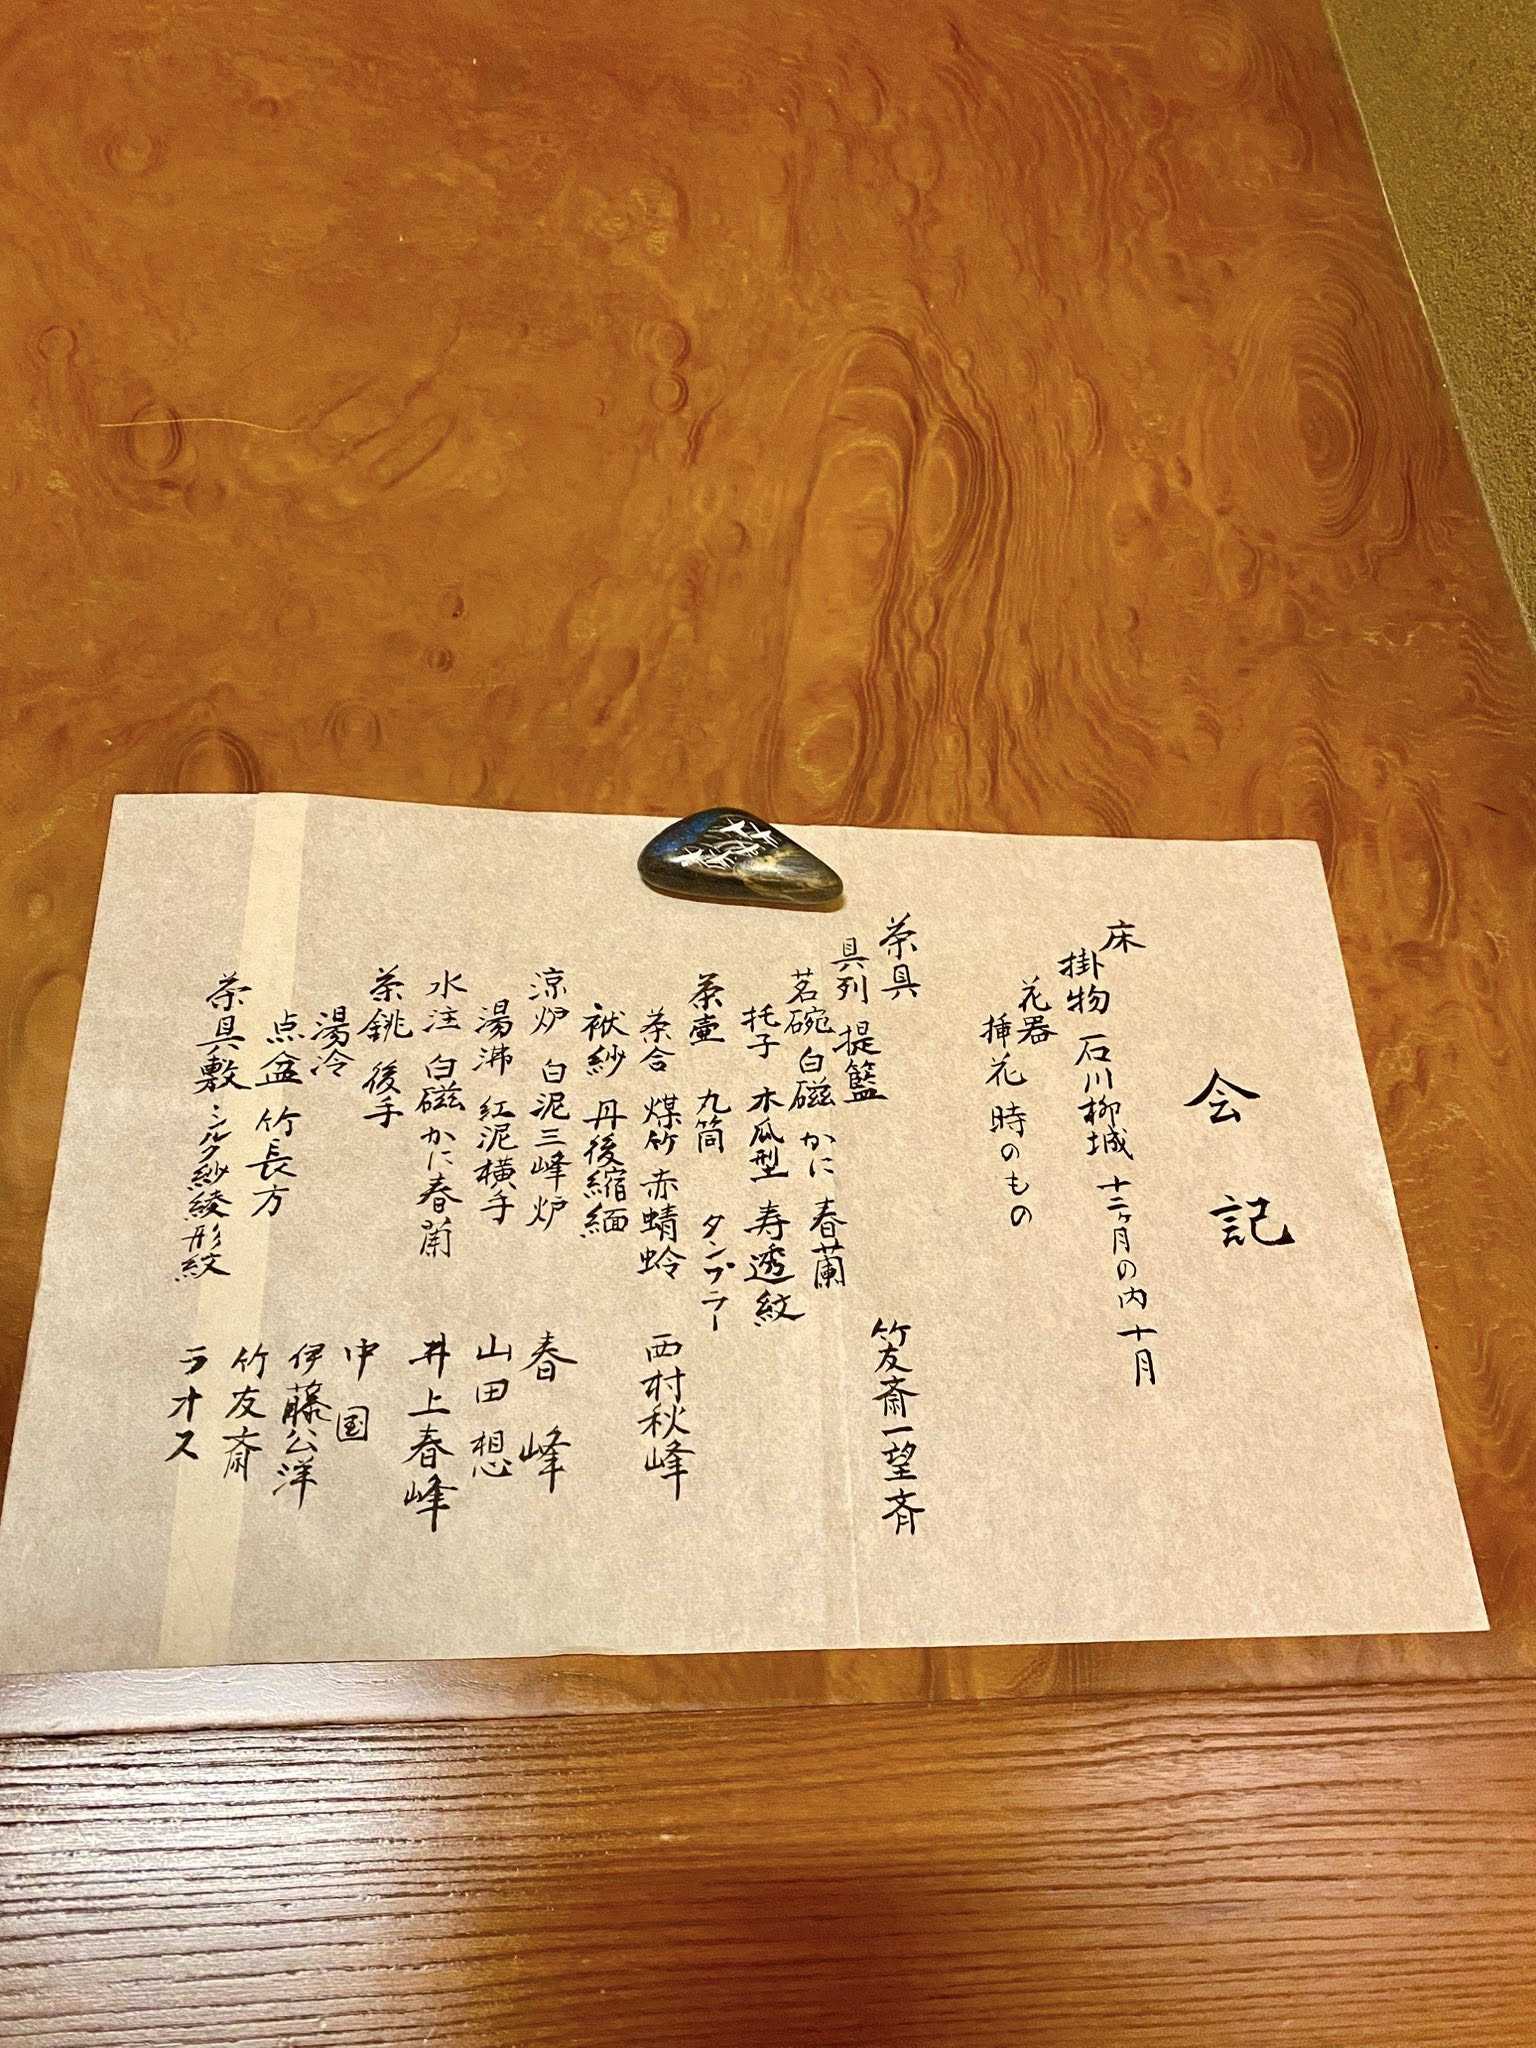 会記
床
掛物 石川柳城 十二ヶ月の内 十月
花器
挿花 時のもの
茶具
具列 提籃 竹友斎一望斉
茗碗 白磁 かに 春蘭
托子 木瓜型 寿透紋
茶壷 丸筒 タンブラー
茶合 煤竹 赤蜻蛉 西村秋峰
袱紗 丹後縮緬
涼炉 白泥三峰炉 春峰
湯沸 紅泥横手 山田想
水注 白磁かに春蘭 井上春峰
茶銚 後手 中国
湯冷 伊藤公洋
点盆 竹長方 竹友斎
茶具敷 シルク紗綾形紋 ラオス